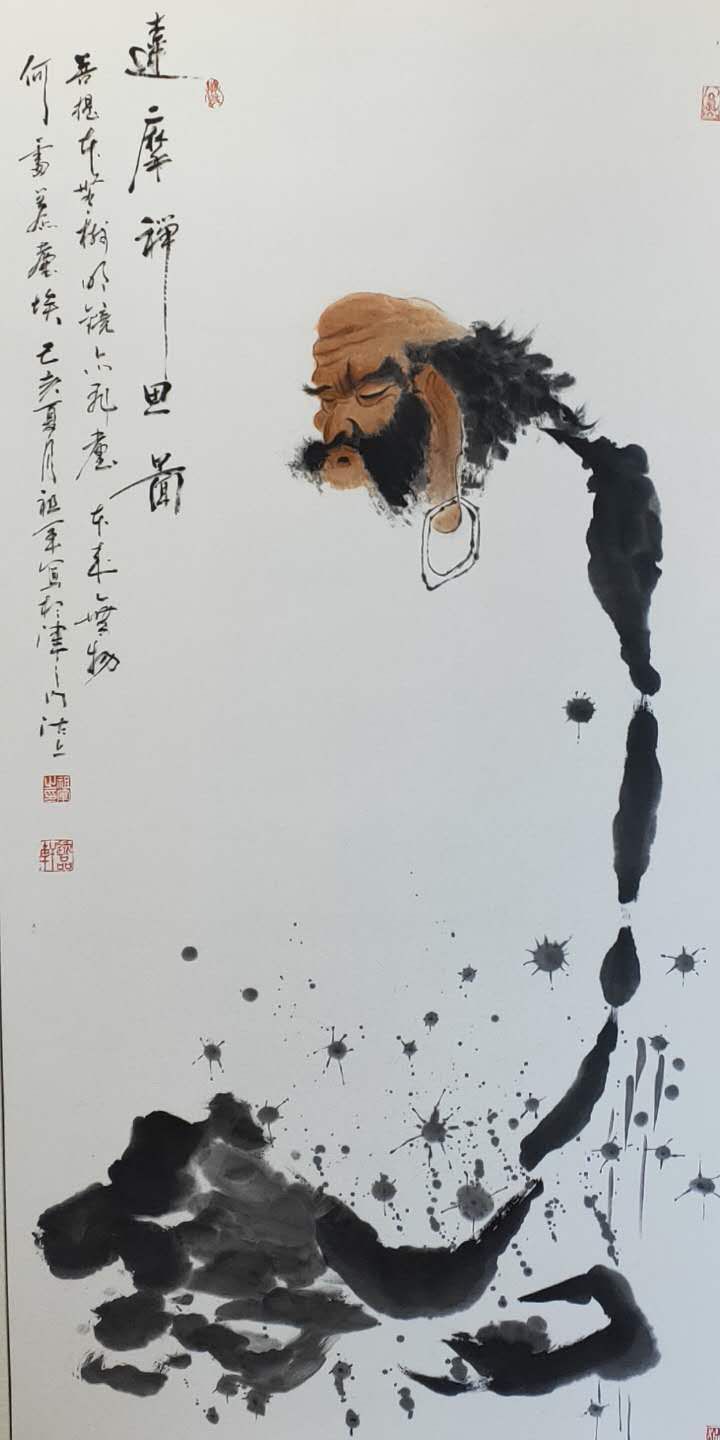 達摩禪思圖
菩提本無樹明鏡亦非臺 本來無物
何處惹塵埃 己亥夏月祖軍寫於津門沽上
祖軍之印